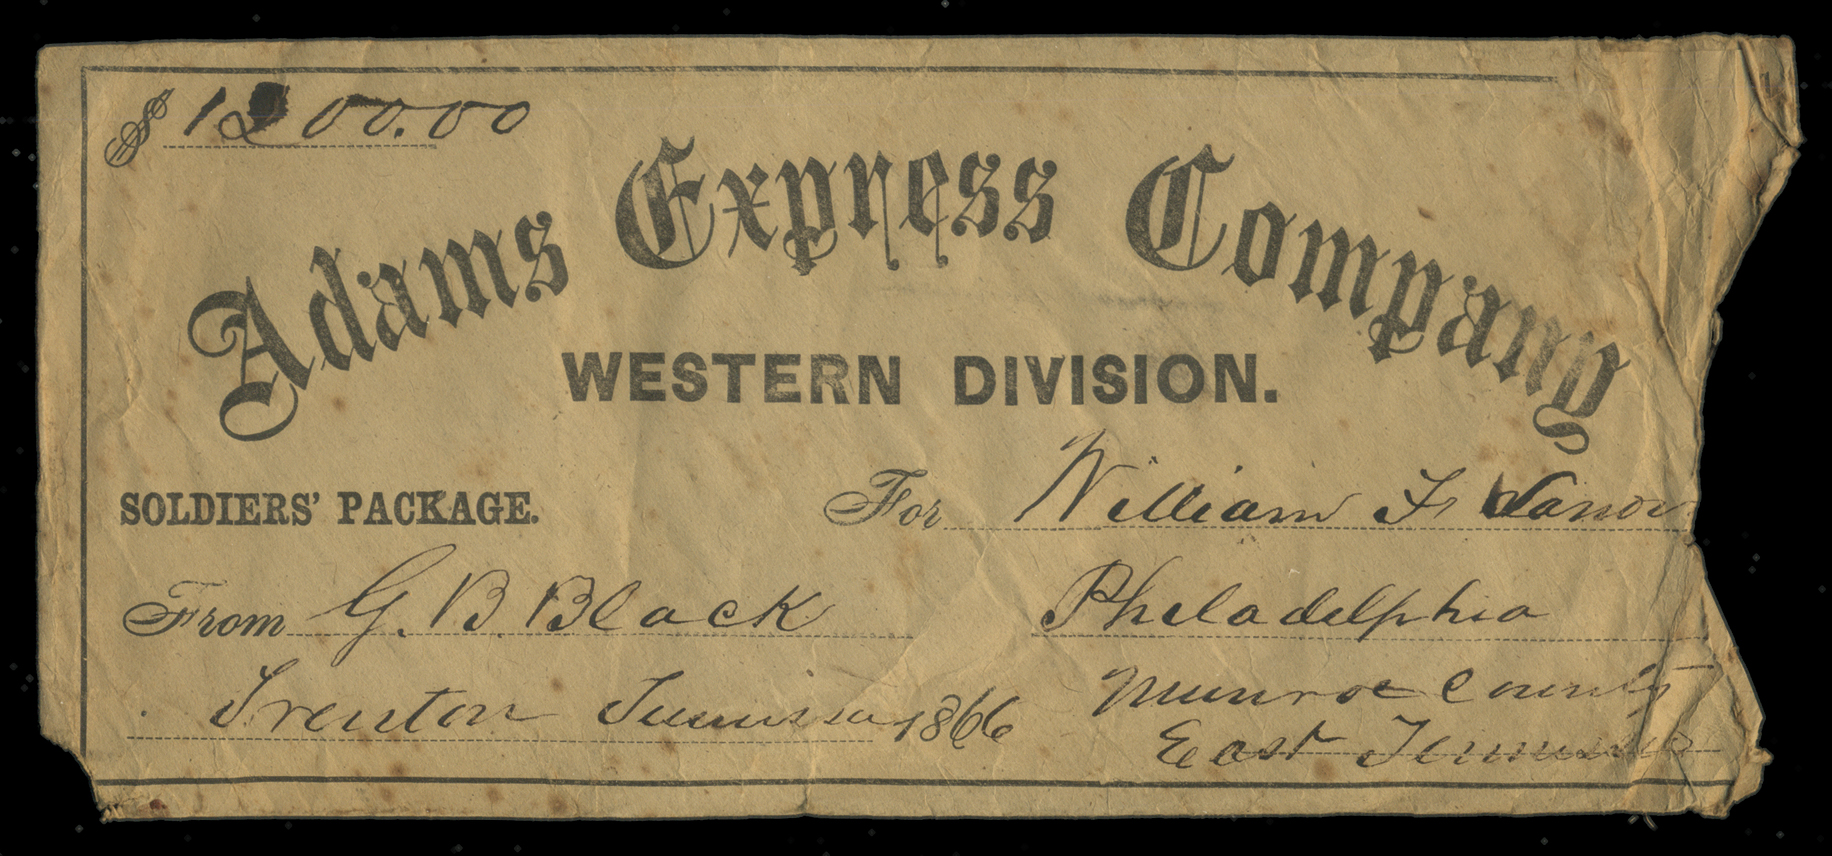 $ 1200.00
Adams Express Company
WESTERN DIVISION.
SOLDIERS' PACKAGE.
For William F
From G. B. Black
Philadelphia
Trenton Tennessee 1866
Munroe County
East Tennessee